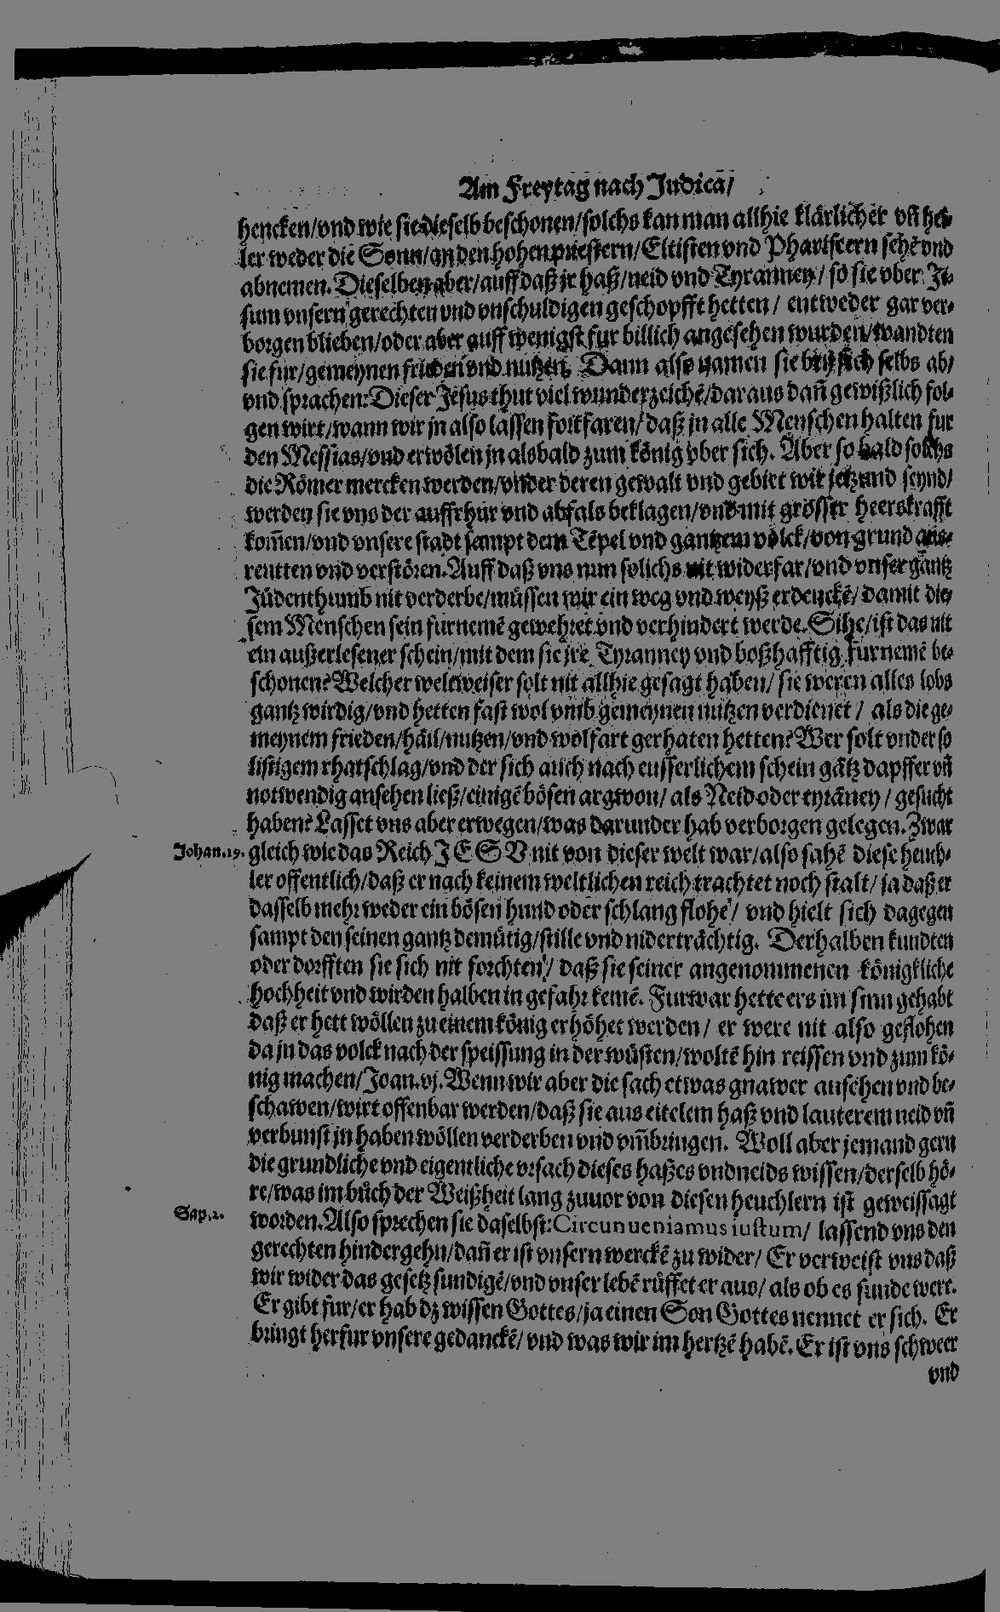 Am Freytag nach Judica/
hencken/vnd wie sie dieselb beschonen/solchs kan man allhie klärlicher vñ hel-
ler weder die Sonn/an den hohenpriestern/Eltisten vnd Phariseern sehē vnd
abnemen. Dieselben aber/auff daß jr haß/neid vnd Tyranney/ so sie vber Je-
sum vnsern gerechten vnd vnschuldigen geschopfft hetten/ entweder gar ver-
borgen blieben/oder aber auff wenigst fur billich angesehen wurden/wandten
sie fur/gemeynen frieden vnd nutzen. Dann also namen sie bey sich selbs ab/
vnd sprachen: Dieser Jesus thut viel wunderzeichē/daraus dañ gewißlich fol-
gen wirt/wann wir jn also lassen fortfaren/ daß jn alle Menschen halten fur
den Messias/vnd erwölen jn alsbald zum könig vber sich. Aber so bald solchs
die Römer mercken werden/vnder deren gewalt vnd gebiet wir jetzund seynd/
werden sie vns der auffrhur vnd abfals beklagen/vnd mit grösser heerskrafft
kom̃en/vnd vnsere stadt sempt dem Tēpel vnd gantzem volck/von grund aus-
reutten vnd verstören. Auff daß vns nun solichs nit widerfar/vnd vnser gantz
Jüdenthumb nit verderbe/müssen wir ein weg vnd weyß erdenckē/ damit die-
sem Menschen sein furnemē gewehret vnd verhindert werde. Sihe/ist das nit
ein außerlesener schein/mit dem sie jre Tyranney vnd boßhafftig furnemē be-
schonen? Welcher weltweiser solt nit allhie gesagt haben/ sie weren alles lobs
gantz wirdig/vnd hetten fast wol vmb gemeynen nutzen verdienet/ als die ge-
meynem frieden/häil/nutzen/vnd wolfart gerhaten hetten? Wer solt vnder so
listigem rhatschlag/vnd der sich auch nach eusserlichem schein gātz dapffer vñ
notwendig ansehen ließ/einigē bösen argwon/ als Neid oder tyrāney/ gesucht
haben? Lasset vns aber erwegen/was darunder hab verborgen gelegen. Zwar
Johan.19. gleich wie das Reich JESV nit von dieser welt war/also sahē diese heuch-
ler offentlich/daß er nach keinem weltlichen reich trachtet noch stalt/ ja daß er
dasselb mehr weder ein bösen hund oder schlang flohe/ vnd hielt sich dagegen
sampt den seinen gantz demütig/stille vnd niderträchtig. Derhalben kundten
oder dorfften sie sich nit forchten/ daß sie seiner angenommenen königkliche
hochheit vnd wirden halben in gefahr kemē. Furwar hette ers im sinn gehabt
daß er hett wöllen zu einem könig erhöhet werden/ er were nit also geflohen
da jn das volck nach der speissung in der wüsten/woltē hin reissen vnd zum kö-
nig machen/Joan.vj. Wenn wir aber die sach etwas gnawer ansehen vnd be-
schawen/wirt offenbar werden/daß sie aus eitelem haß vnd lauterem neid vñ
verbunst jn haben wöllen verderben vnd vm̃bringen. Woll aber jemand gern
die grundliche vnd eigentliche vrsach dieses haßes vnd neids wissen/derselb hö-
re/was im bůch der Weißheit lang zuuor von diesen heuchlern ist geweissagt
Sap.2. worden. Also sprechen sie daselbst: Circunueniamus iustum/ lassend vns den
gerechten hindergehn/dañ er ist vnsern werckē zu wider/ Er verweist vns daß
wir wider das gesetz sundigē/vnd vnser lebē rüffet er aus/ als ob es sunde wert.
Er gibt fur/er hab dz wissen Gottes/ja einen Son Gottes nennet er sich. Er
bringt herfur vnsere gedanckē/ vnd was wir im hertzē habē. Er ist vns schweer
vnd